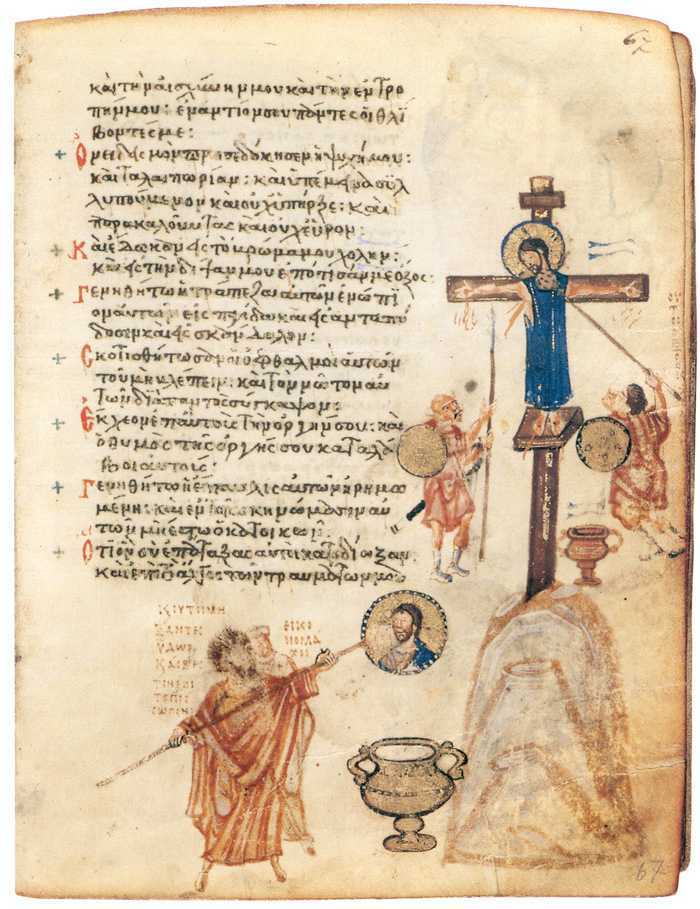 καὶ τὴν αἰσχύνην μου καὶ τὴν ἐντρο
πήν μου: ἐναντίον σου πάντες οἱ θλί
βοντές με:
Ὀνειδισμὸν προσεδόκησεν ἡ ψυχή μου:
καὶ ταλαιπωρίαν: καὶ ὑπέμεινα συλ
λυπούμενον καὶ οὐχ ὑπῆρξε: καὶ
παρακαλοῦντας καὶ οὐχ εὗρον:
Καὶ ἔδωκαν εἰς τὸ βρῶμά μου χολήν:
καὶ εἰς τὴν δίψαν μου ἐπότισάν με ὄξος:
Γενηθήτω ἡ τράπεζα αὐτῶν ἐνώπι
ον αὐτῶν εἰς παγίδα καὶ εἰς ἀνταπό
δοσιν καὶ εἰς σκάνδαλον:
Σκοτισθήτωσαν οἱ ὀφθαλμοὶ αὐτῶν
τοῦ μὴ βλέπειν: καὶ τὸν νῶτον αὐ
τῶν διὰ παντὸς σύγκαμψον:
Ἔκχεον ἐπ' αὐτοὺς τὴν ὀργήν σου: καὶ
ὁ θυμὸς τῆς ὀργῆς σου καταλά
βοι αὐτούς:
Γενηθήτω ἡ ἔπαυλις αὐτῶν ἠρημω
μένη: καὶ ἐν τοῖς σκηνώμασιν αὐ
τῶν μὴ ἔστω ὁ κατοικῶν:
Ὅτι ὃν σὺ ἐπάταξας αὐτοὶ κατεδίωξαν
καὶ ἐπὶ τὸ ἄλγος τῶν τραυμάτων μου
ΕΙΚΟ
ΝΟΜΑ
ΧΟΙ
67